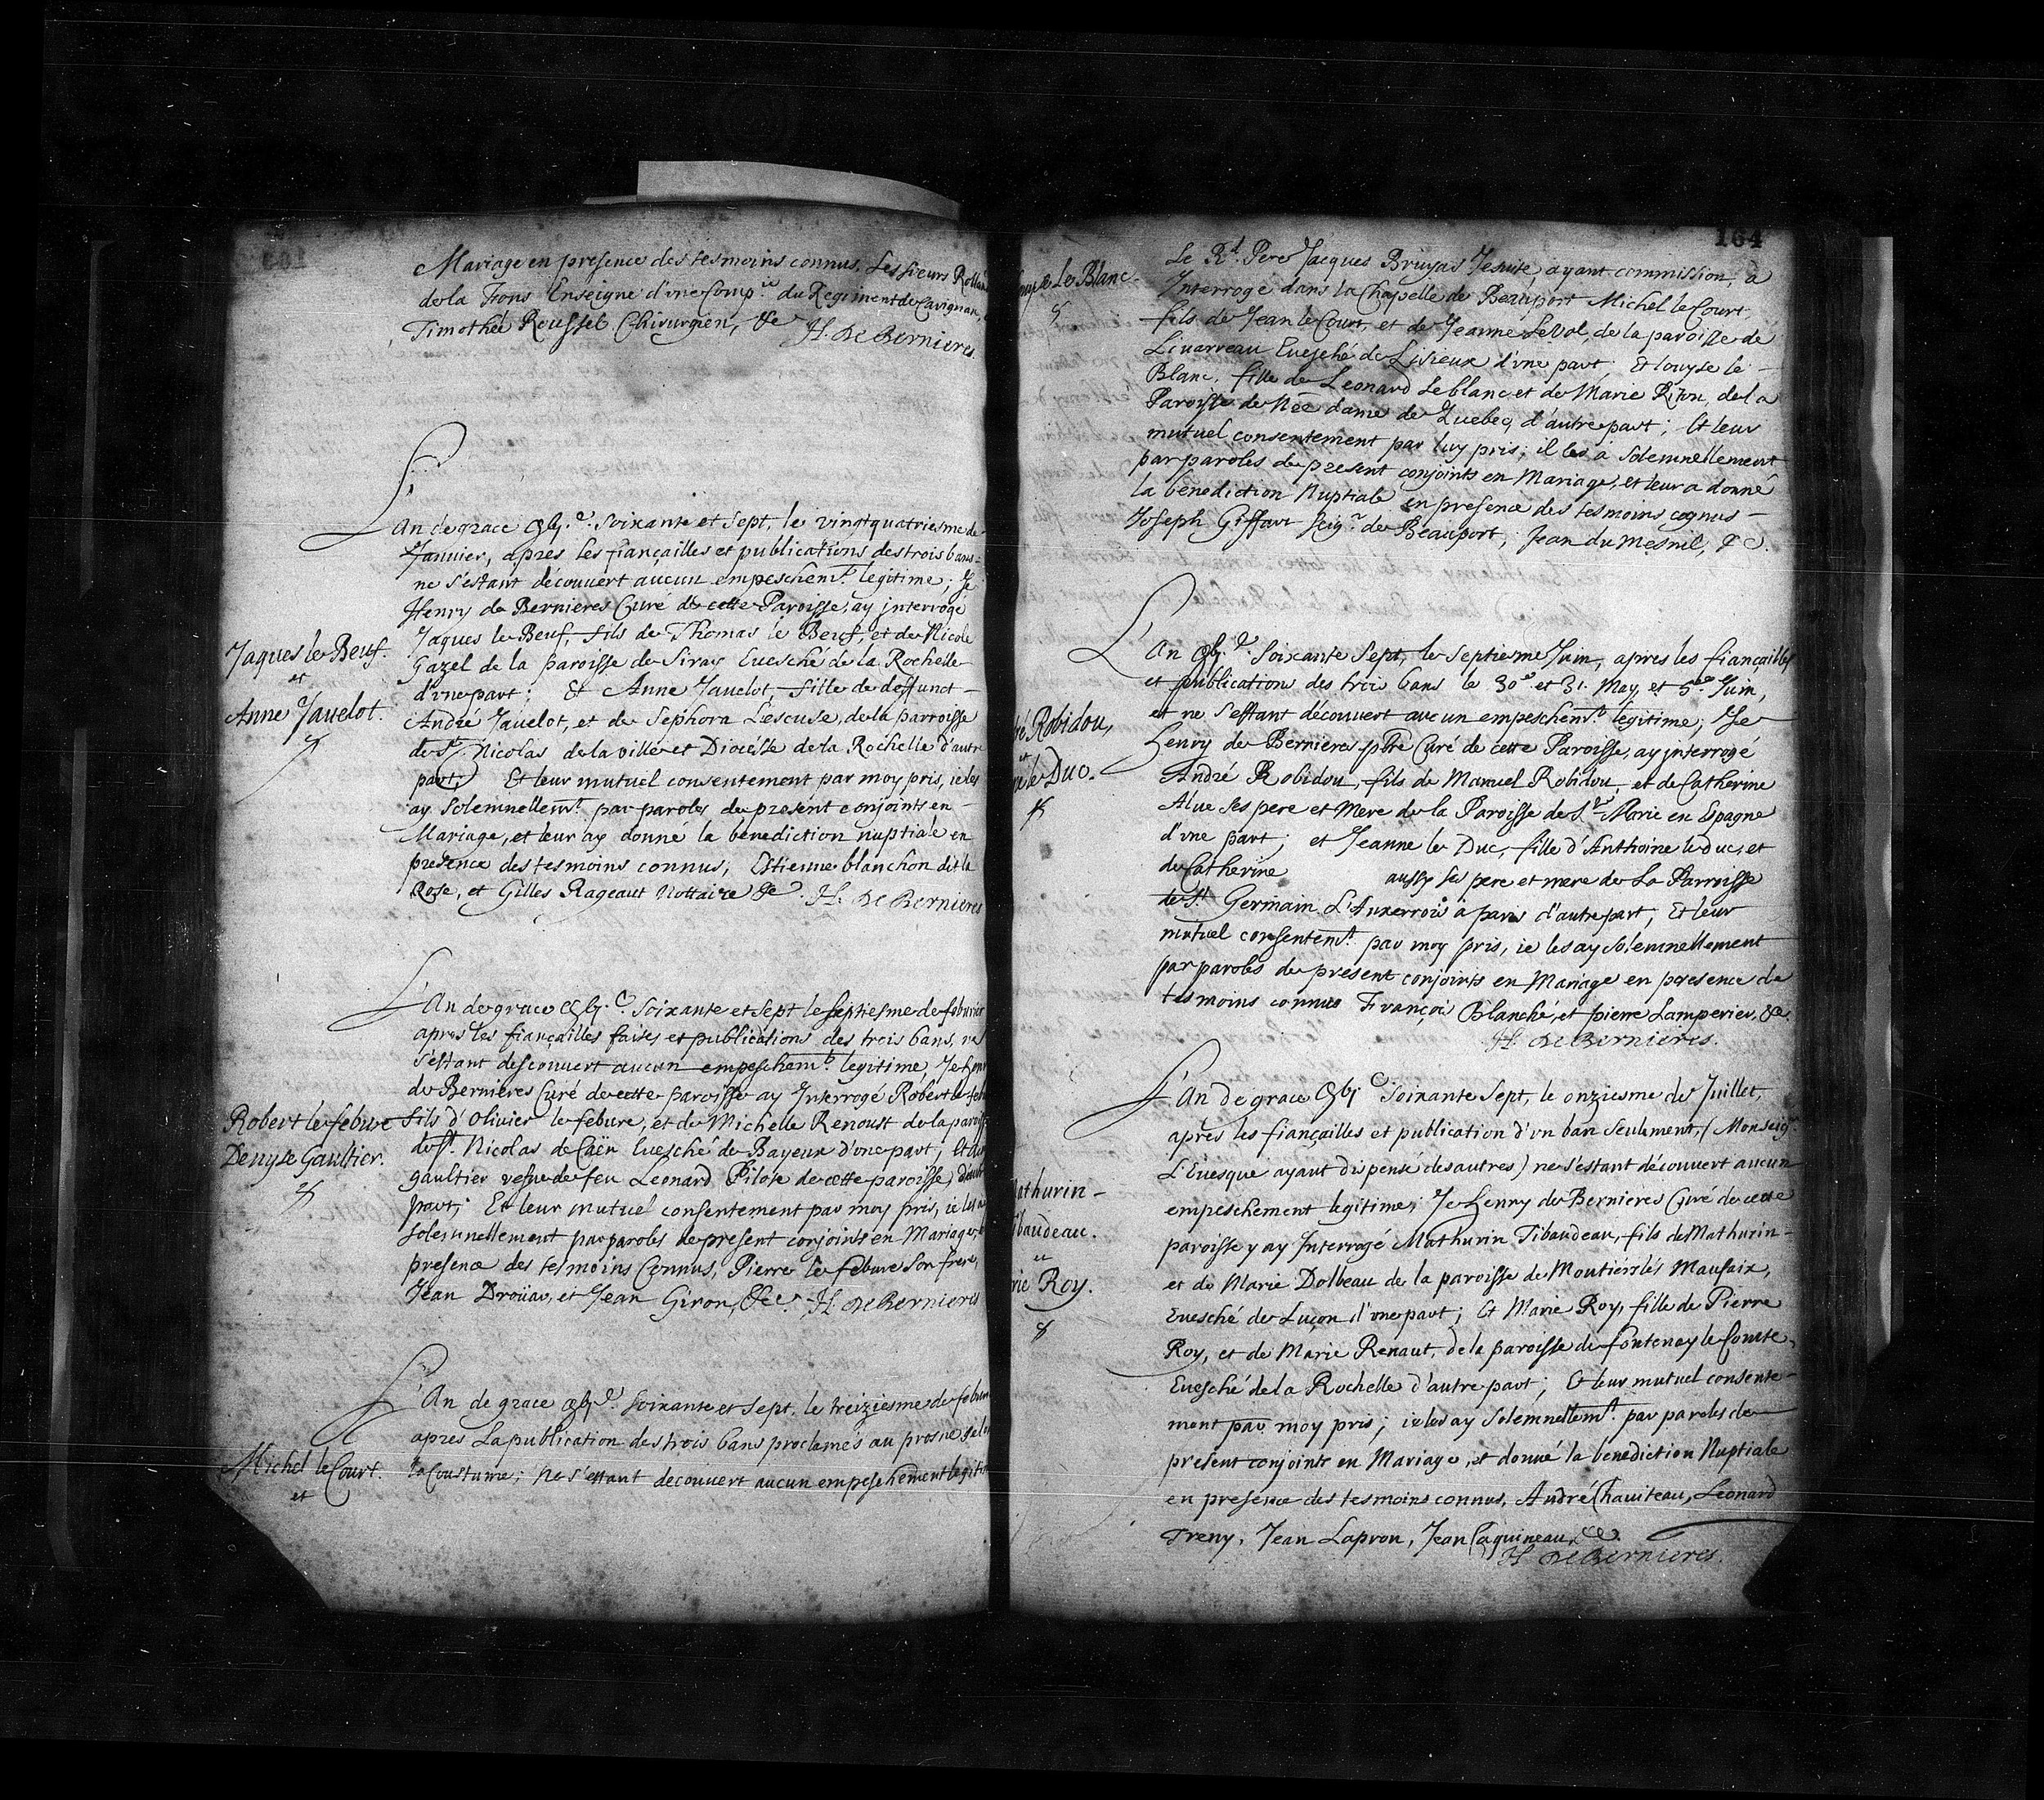 Mariage en presence des tesmoins connus. Les sieurs Rollan
de la Frons Enseigne d'vne Comp.ie du Regiment de Carignan,
Timothée Roussel Chirurgien, &c H. de Bernieres.
L'An de grace soixante et sept, le vingtquatriesme de
Januier, apres les fiançailles et publications des trois bans
ne s'estant découvert aucun empeschem.t legitime; Je
Henry de Bernieres Curé de cette Paroisse, ay interrogé
Jaques le Beuf.
et
Anne Javelot.
Jaques le Beuf, fils de Thomas le Beuf, et de Nicole
Gazel de la paroisse de Siray Euesché de la Rochelle
d'vne part; Et Anne Javelot fille de deffunct
André Javelot, et de Sephora Lescuse, de la parroisse
de St Nicolas de la ville et Diocese de la Rochelle d'autre
part; Et leur mutuel consentement par moy pris, ie les
ay solemnellem.t par paroles de present conjoints en
Mariage, et leur ay donné la benediction nuptiale en
presence des tesmoins connus, Estienne blanchon dit la
Rose, et Gilles Rageaut Nottaire &c. H. de Bernieres
L'An de grace soixante et sept le septiesme de feburier
apres les fiançailles faites et publications des trois bans, ne
s'estant descouvert aucun empeschem.t legitime, Je
de Bernieres Curé de cette paroisse ay Interrogé Robert le
Robert le febvre
Denyse Gaultier.
fils d'Olivier le febure, et de Michelle Renoust de la paroisse
de St. Nicolas de Caën Euesché de Bayeux d'vne part, Et
gaultier vefue de feu Leonard Pilote de cette paroisse d'autre
part; Et leur mutuel consentement par moy pris, ie les
solemnellement par paroles de present conjoints en Mariage,
presence des tesmoins Connus, Pierre le febure son frere,
Jean Droüar, et Jean Giron, &c. H. de Bernieres
L'An de grace soixante et sept, le treiziesme de
apres La publication des trois bans proclamés au prosne
Michel le Court.
et
la Coustume; Ne s'estant decouvert aucun empeschement
164
Le Rd. Pere Jacques Bruyas Jesuite, ayant commission, à
Le Blanc
Interrogé dans la Chapelle de Beauport Michel le Court
fils de Jean le Court, et de Jeanne LeVol, de la paroisse de
Livarreau Euesché de Lisieux d'vne part, Et louyse le
Blanc, fille de Leonard Le blanc et de Marie Riton, de la
Paroisse de Nre dame de Quebec, d'autre part; Et leur
mutuel consentement par luy pris; il les à solemnellement
par paroles de present conjoints en Mariage, et leur a donné
la benediction Nuptiale en presence des tesmoins cognus
Joseph Giffart seig.r de Beauport, Jean du Mesnil, &c.
L'An soixante Sept, le septiesme Juin, apres les fiançailles
et publication des trois bans le 30e et 31. May, et 5e Juin,
et ne s'estant découvert aucun empeschem.t legitime; Je
Robidou,
et
le Duc.
Henry de Bernieres pbre Curé de cette Paroisse, ay interrogé
André Robidou, fils de Manuel Robidou, et de Catherine
Alue ses pere et mere de la Paroisse de Ste Marie en Espagne
d'vne part; et Jeanne le Duc, fille d'Anthoine le duc, et
de Catherine aussy ses pere et mere de La Parroisse
de St Germain L'Auxerrois à paris d'autre part, Et leur
mutuel consentem.t par moy pris, ie les ay solemnellement
par paroles de present conjoints en Mariage en presence de
tesmoins connus François Blanché, et pierre Lamperier, &c.
H. de Bernieres.
L'An de grace soixante Sept, le onziesme de Juillet,
apres les fiançailles et publication d'vn ban seulement, (Monseigr.
L'Euesque ayant dispensé des autres) ne s'estant découvert aucun
empeschement legitime; Je Henry de Bernieres Curé de cette
Mathurin
Tibaudeau.
et
Roy.
paroisse y ay Interrogé Mathurin Tibaudeau, fils de Mathurin
et de Marie Dolbeau de la paroisse de Moutiers lés Maufaix,
Euesché de Luçon d'vne part; Et Marie Roy, fille de Pierre
Roy, et de Marie Renaut, de la paroisse de fontenay le Comte,
Euesché de la Rochelle d'autre part; Et leur mutuel consente-
ment par moy pris; ie les ay solemnellem.t par paroles de
present conjoints en Mariage, et donné la benediction Nuptiale
en presence des tesmoins connus, André Chauiteau, Leonard
Treny, Jean Lapron, Jean Caquineau, &c.
H. de Bernieres.